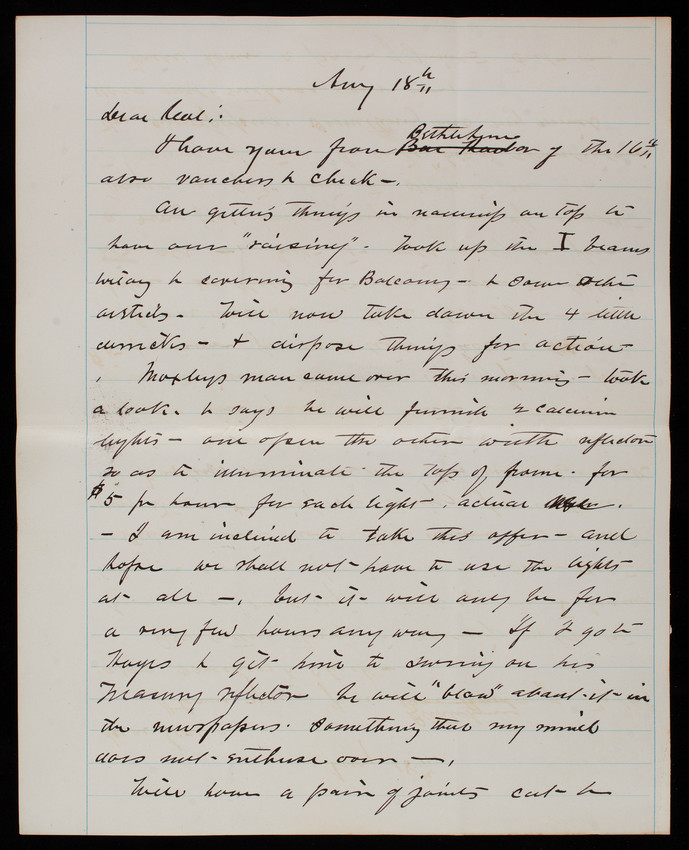 Aug 18th
dear Col:
I have yours from Bethlehem Bar Harbor of the 16th
also vouchers & check -.
Am getting things in readiness on top to
have our "raising". Took up the I beams
& covering for Balcony - & some other
articles - Will now take down the 4 little
derricks - & dispose things for action
. Moxleys man came over this morning - took
a look. & says he will furnish 2 calcium
lights - one open the other with reflector
so as to illuminate the top of frame. for
$5 pr hour for each light. actual
- I am inclined to take this offer - and
hope we shall not have to use the lights
at all -. but it will only be for
a very few hours any way - If I go to
Hayes & get him to swing on his
Treasury reflector he will "blow" about it in
the newspapers. Something that my mind
does not enthuse over -.
Will have a pair of joints cut &